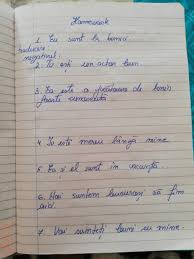 Homework
1. Eu sunt la birou
traducere
negativul.
2. Tu ești un actor bun.
3. Ea este o persoană de
foarte
4. Tu ești mereu lângă mine.
5. Ea și el sunt în vacanță.
6. Noi suntem bucuroși să fim
aici.
7. Voi sunteți buni cu mine.